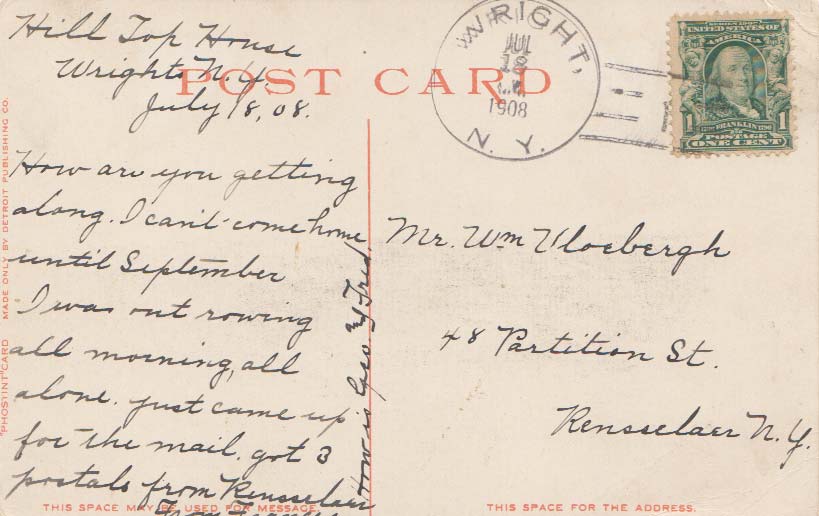 Hill Top House
Wrights N.Y.
July 18, 08.
POST CARD
How are you getting
along. I can't come home
until September
I was out rowing
all morning, all
alone. just came up
for the mail. got 3
postals from Rensselaer
From
How is Geo. & Fred.
WRIGHT,
JUL
18
1908
N. Y.
SERIES 1902
UNITED STATES OF
AMERICA
1 FRANKLIN 1
POSTAGE
ONE CENT
Mr. Wm Vloebergh
48 Partition St.
Rensselaer N.Y.
"PHOSTINT" CARD MADE ONLY BY DETROIT PUBLISHING CO.
THIS SPACE MAY BE USED FOR MESSAGE.
THIS SPACE FOR THE ADDRESS.